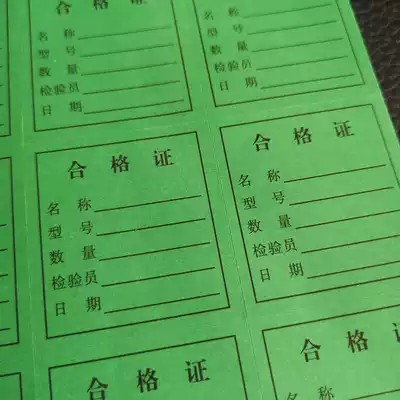 合格证
名称
型号
数量
检验员
日期
名称
型号
数量
检验员
日期
合格证
名称
型号
数量
检验员
日期
合格证
名称
型号
数量
检验员
日期
合格证
合格证
名称